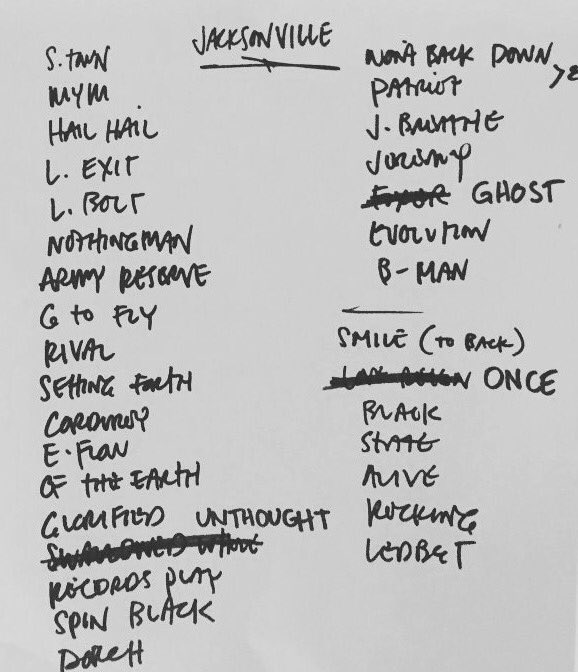 JACKSONVILLE
S. TOWN
MYM
HAIL HAIL
L. EXIT
L. BOLT
NOTHINGMAN
ARMY RESERVE
G TO FLY
RIVAL
SETTING FORTH
CORDUROY
E. FLOW
OF THE EARTH
GLORIFIED UNTHOUGHT
SWALLOWED WHOLE
RECORDS PLAY
SPIN BLACK
PORCH
WON'T BACK DOWN
PATRIOT
J. BREATHE
JEREMY
GHOST
EVOLUTION
B-MAN
SMILE (TO BACK)
ONCE
BLACK
STATE
ALIVE
ROCKING
LEDBET